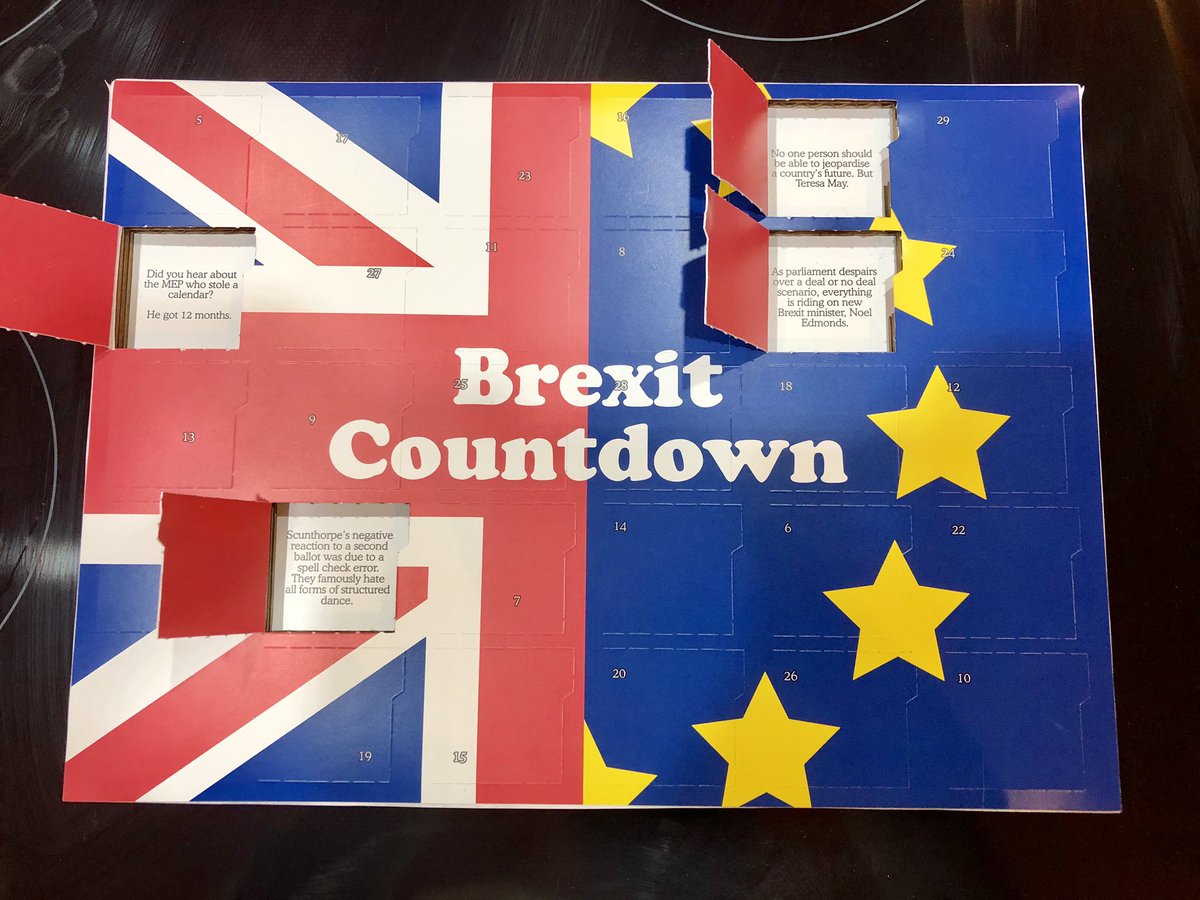 5
17
23
16
No one person should
be able to jeopardise
a country's future. But
Teresa May.
29
Did you hear about
the MEP who stole a
calendar?
He got 12 months.
27
11
8
As parliament despairs
over a deal or no deal
scenario, everything
is riding on new
Brexit minister, Noel
Edmonds.
24
Brexit
Countdown
13
9
25
28
18
12
Scunthorpe's negative
reaction to a second
ballot was due to a
spell check error.
They famously hate
all forms of structured
dance.
7
14
6
22
19
15
20
26
10